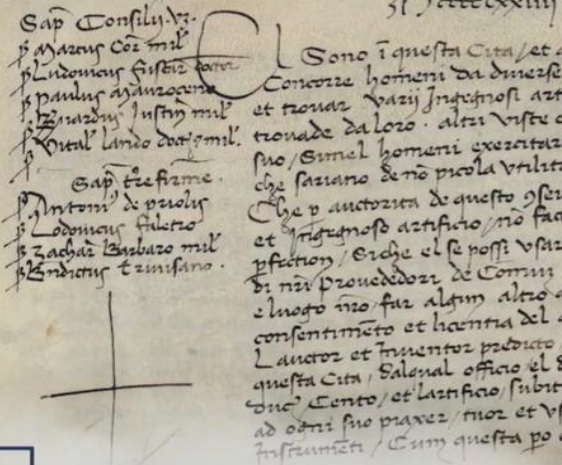 Sap̃ Consilij. vz.
ꝑ Marcus Cor̃ mil̃
ꝑ Ludouicus fuscar̃ doctor
ꝑ Paulus Mauroceno
ꝑ Bñardus Justiñ mil̃
ꝑ Vital̃ lando doct̃ ⁊ mil̃.
ꝑ
Sap̃ t̃re firme.
ꝑ Antoni⁹ de priolis
ꝑ Lodouicus faletro
ꝑ Zachar̃ Barbaro mil̃
ꝑ Bñdictus triuisano.
El Sono ĩ questa Cita / et
Concorre homeni da diuerse
et trouar varij Ingegnosi art
trouade da loro. altri viste
suo / Simel homeni exercitar
che sariano de nõ picola vtilit
Che ꝑ auctorita de questo ꝯser
et Ingegnoso artificio / nõ fac
ꝑfection / Siche el se possi vsar
di nr̃i Prouededori de Comun
e luogo nr̃o / far algun altro
consentimẽto et licentia del
Lauctor et Inuentor predicto
questa Cita / dalqual officio el
duc̃ Cento / et lartificio / subit
ad ogni suo piaxer / tuor et vs
Instrumenti / Cum questa ꝑo